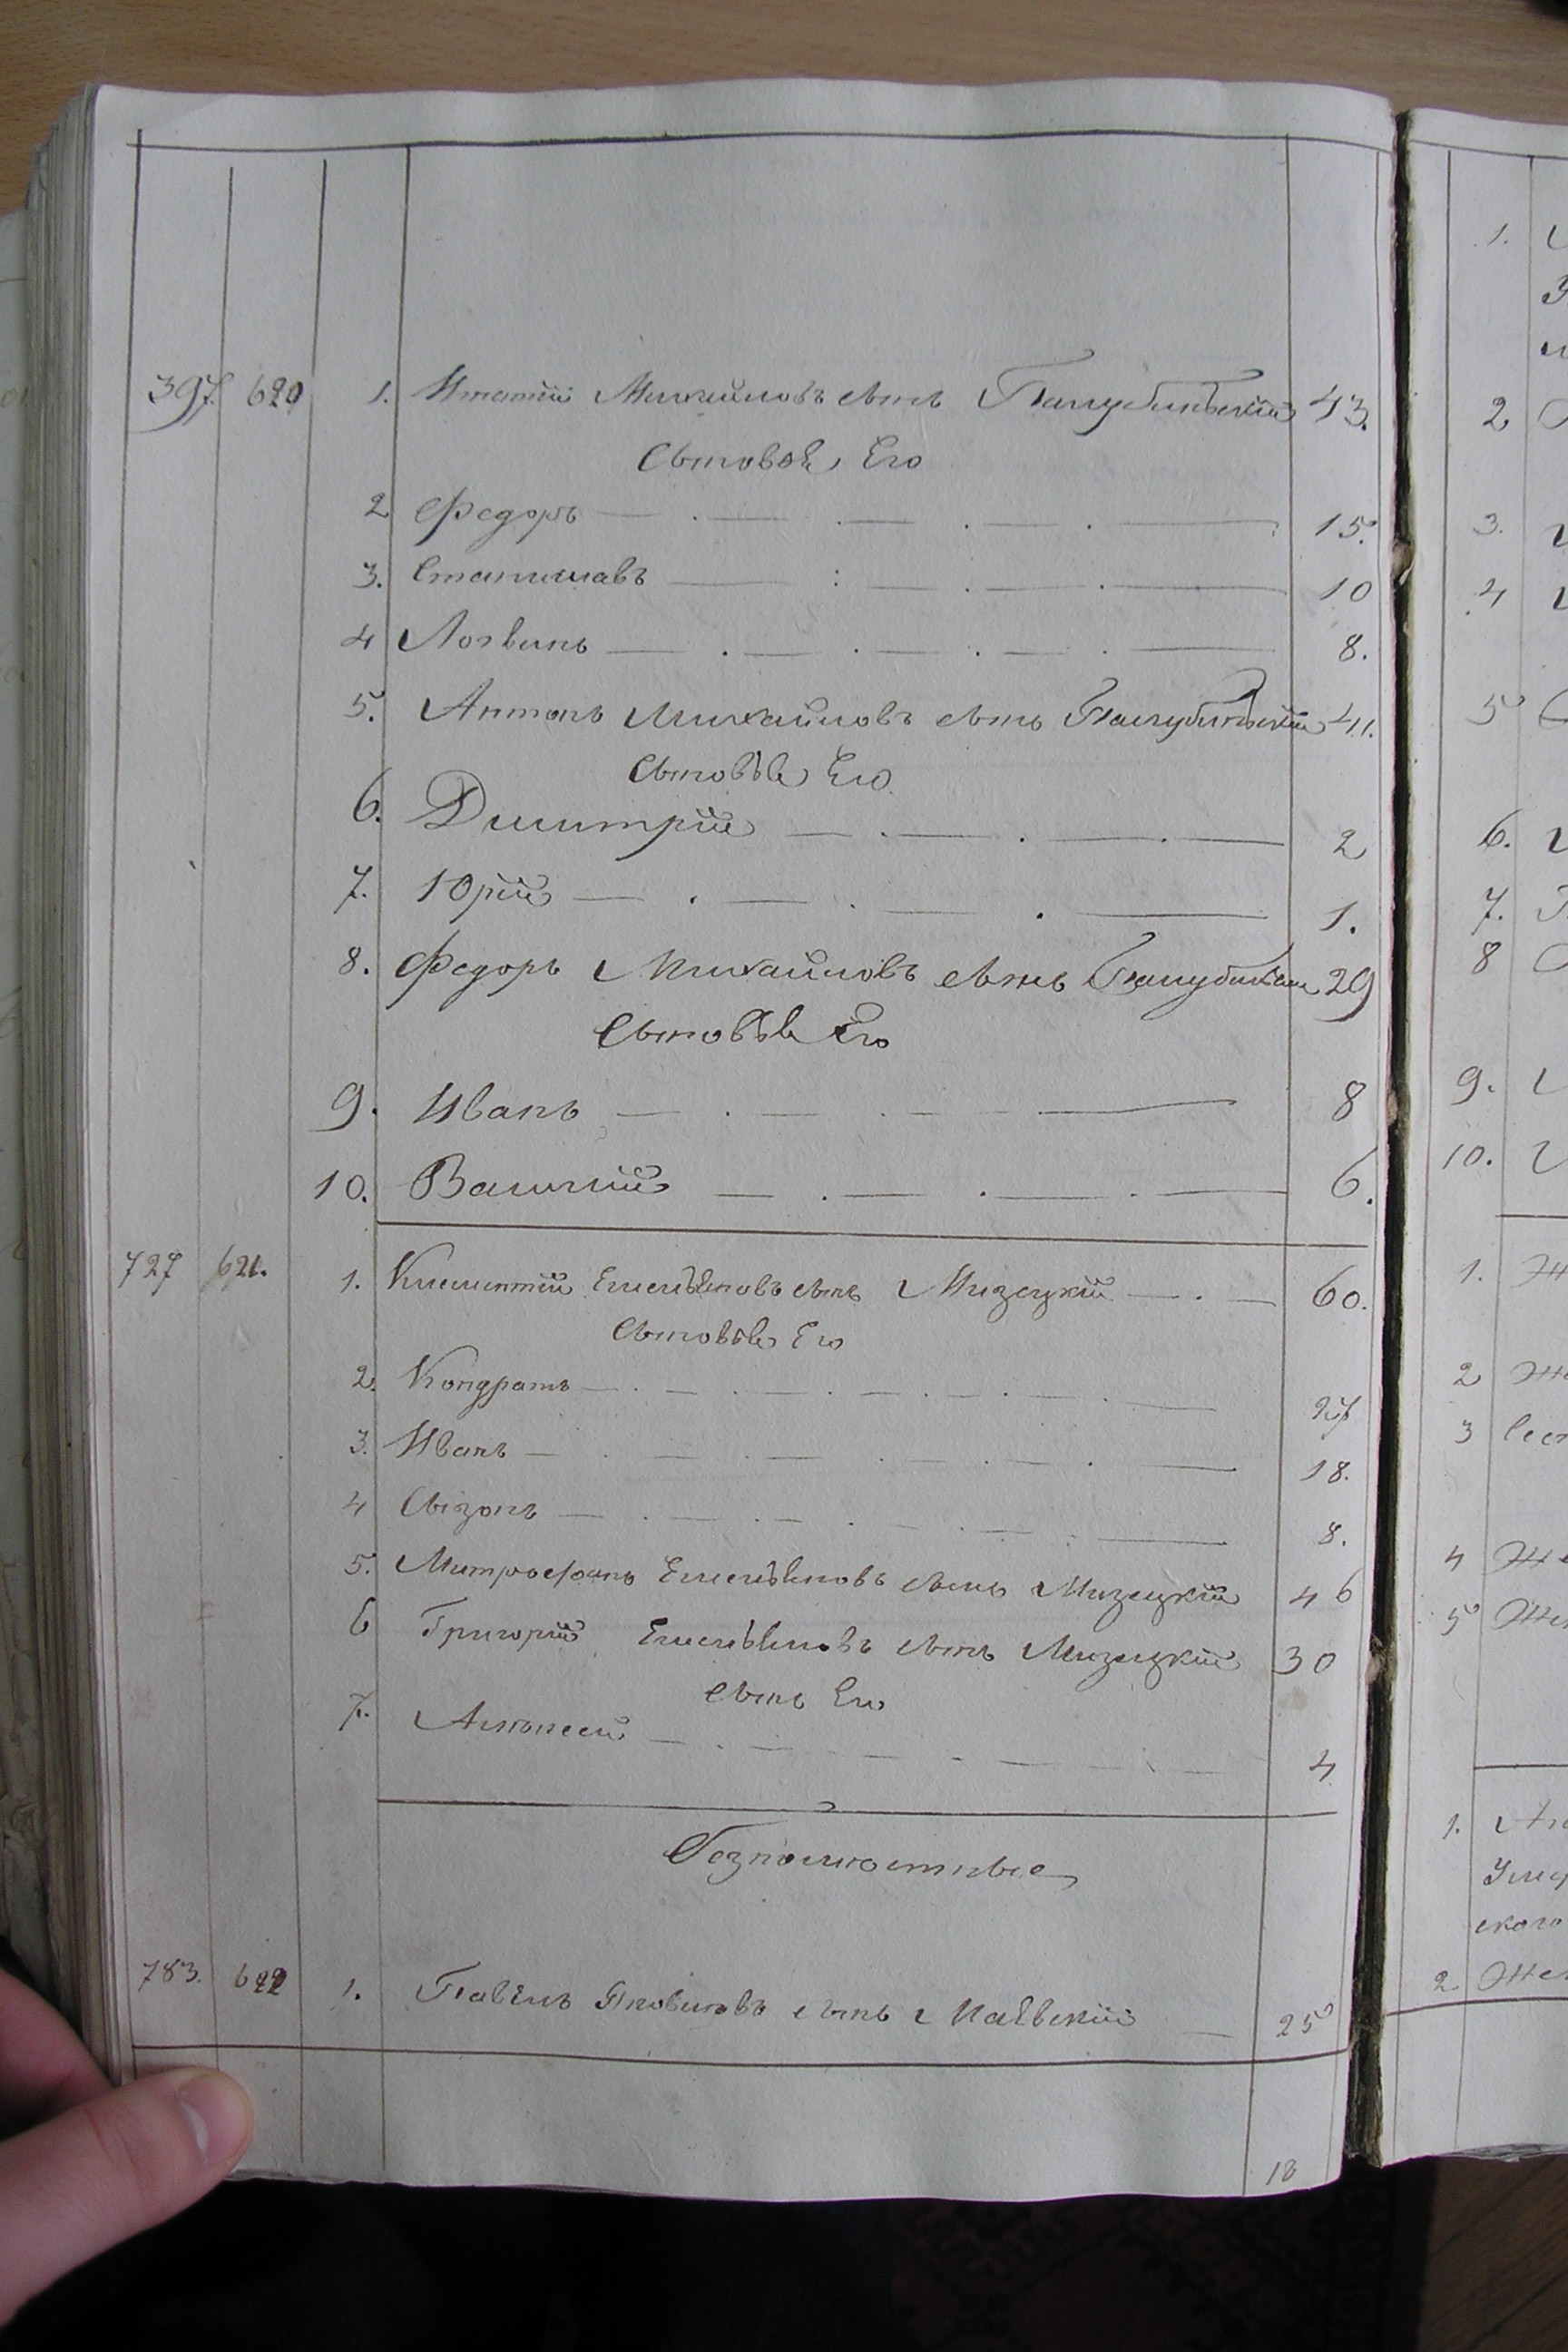 397. 620 1. Игнатій Михайловъ сынъ Пашубинскій 43.
Сыновья Его
2 Федоръ 15.
3. Станиславъ 10
4 Логвинъ 8.
5. Антонъ Михайловъ сынъ 41.
Сыновья Его
6. Димитрій 2
7. Юрій 1.
8. Федоръ Михайловъ сынъ 29
Сыновья Его
9. Иванъ 8
10. Василій 6.
727 621. 1. Климентій Емельяновъ сынъ Мизецкій 60.
Сыновья Его
2. Кондратъ 27
3. Иванъ 18.
4 Сызонъ 8.
5. Митрофанъ Емельяновъ сынъ Мизецкій 46
6 Григорій Емельяновъ сынъ Мизецкій 30
сынъ Его
7. Алексей 4
Безпоместные
783. 622 1. Павелъ сынъ Маевскій 25
18
1.
2
3.
4
5
6.
7.
8
9.
10.
1.
2
3
4
5
1.
Умер
ского
2 Жен